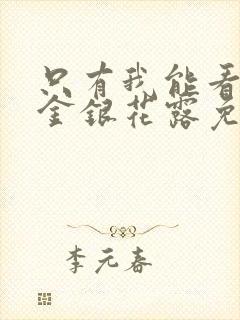 只有我能看
金銀花露免
李元春